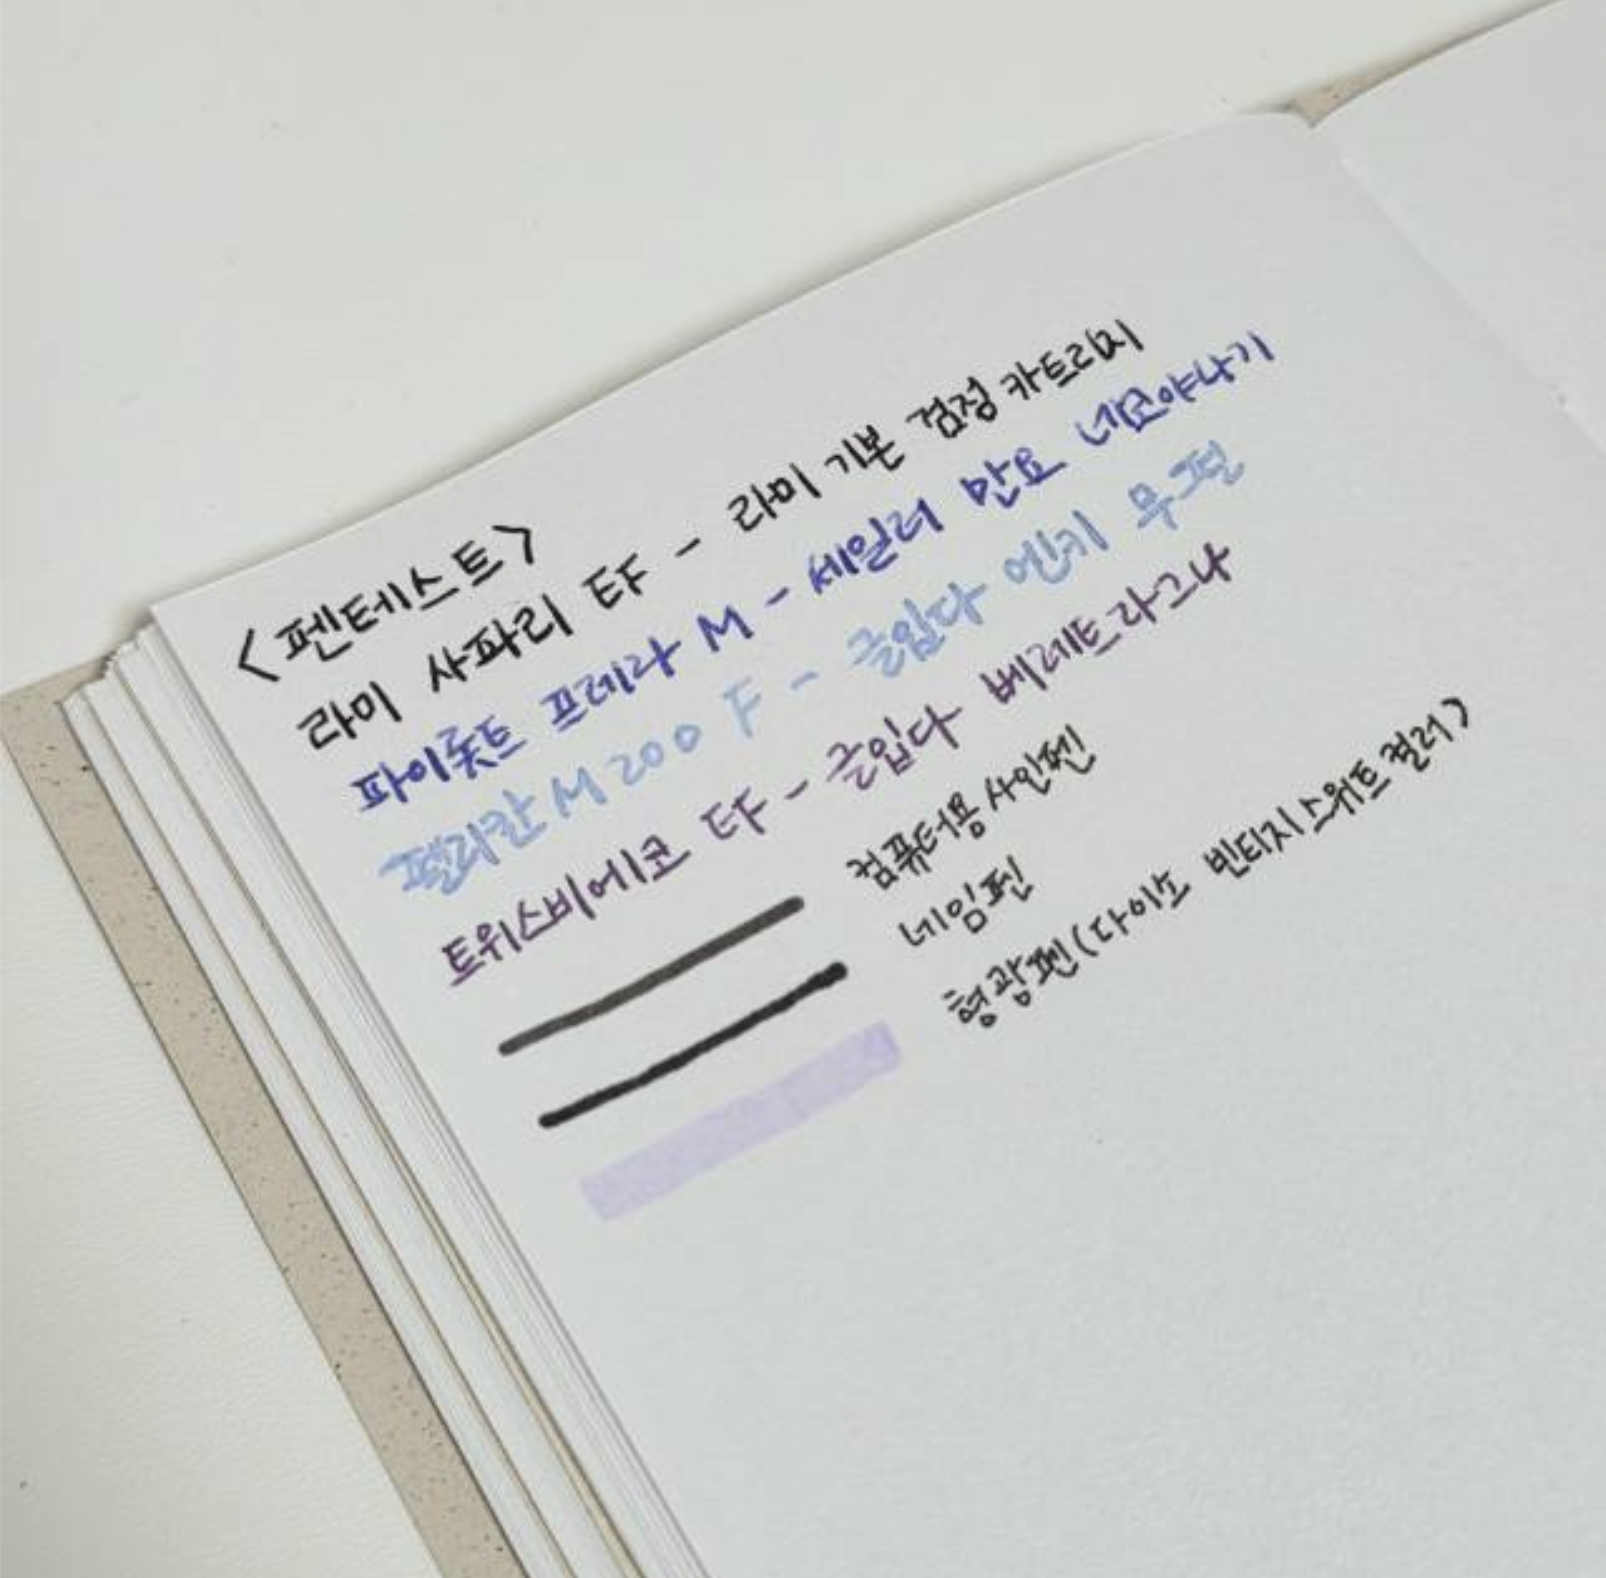 <펜테스트>
라미 사파리 EF - 라미 기본 검정 카트리지
파이롯트 프레라 M - 세일러 만요 네코야나기
펠리칸 M200 F - 글입다 엔키 무그펀
트위스비에코 EF - 글입다 베레트라그나
컴퓨터용 사인펜
네임펜
형광펜(다이소 빈티지스위트컬러)